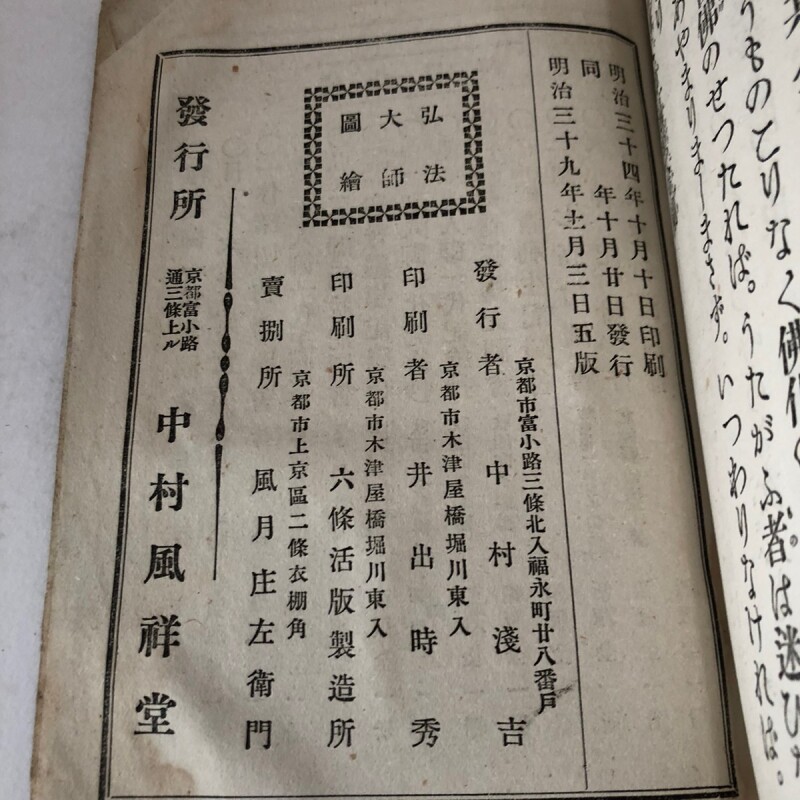 其
うものことりなく佛作
佛のせつたれば。うたがふ者は迷ひ
あやまりましまさず。いつわりなければ。
明治三十四年十月十日印刷
同年十月廿日發行
明治三十九年十一月三日五版
弘法
大師
圖繪
京都市富小路三條北入福永町廿八番戸
發行者 中村淺吉
京都市木津屋橋堀川東入
印刷者 井出時秀
京都市木津屋橋堀川東入
印刷所 六條活版製造所
京都市上京區二條衣棚角
賣捌所 風月庄左衛門
發行所 京都富小路通三條上ル 中村風祥堂